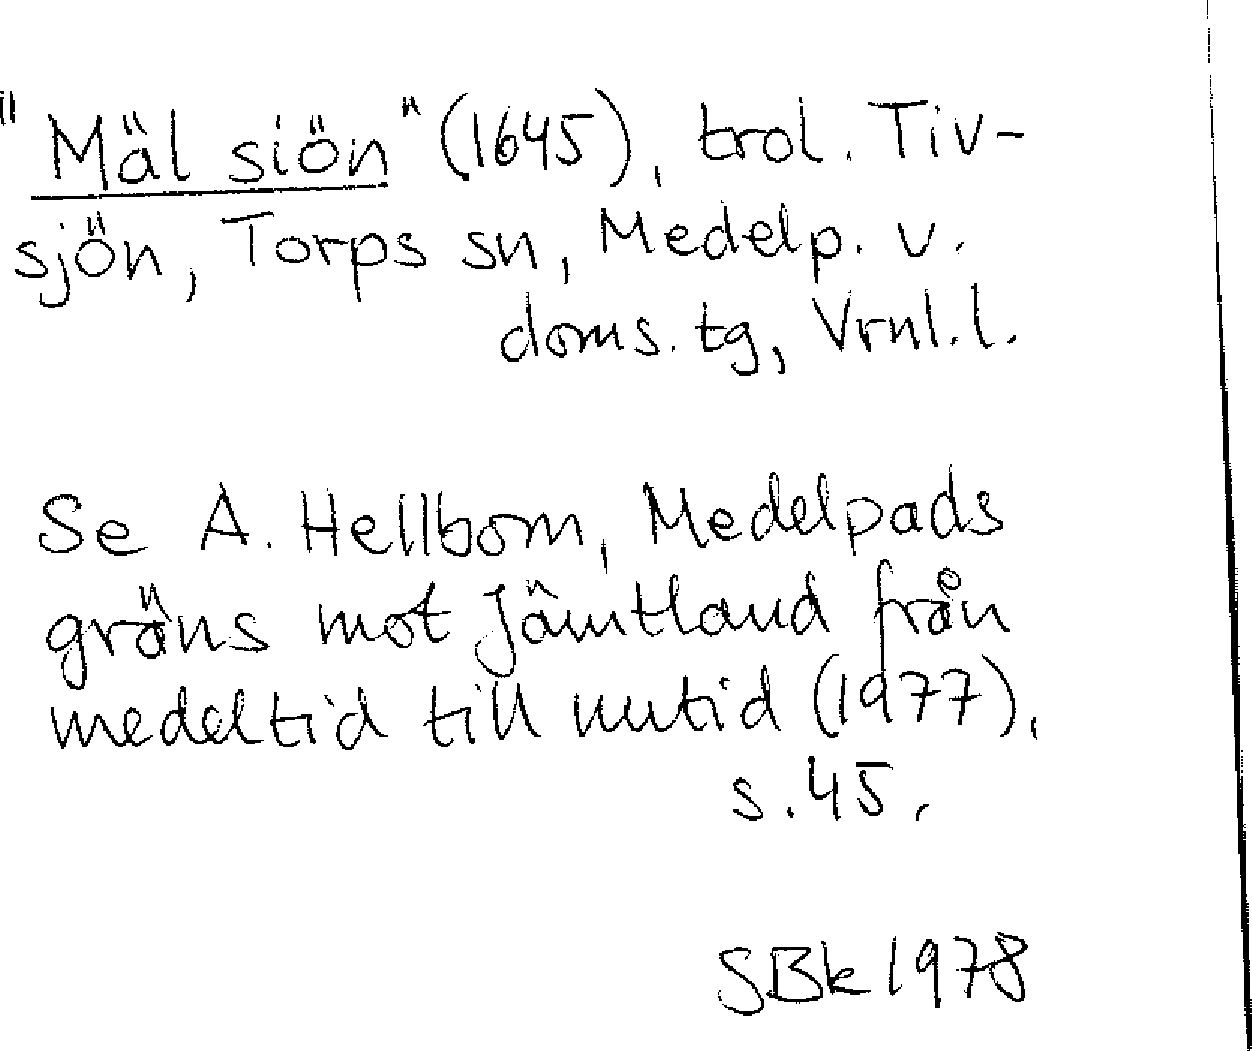 "Mäl siön" (1645), trol. Tiv-
sjön, Torps sn, Medelp. v.
doms. tg, Vrnl. l.
Se A. Hellbom, Medelpads
gräns mot Jämtland från
medeltid till nutid (1977),
s. 45.
SBk 1978